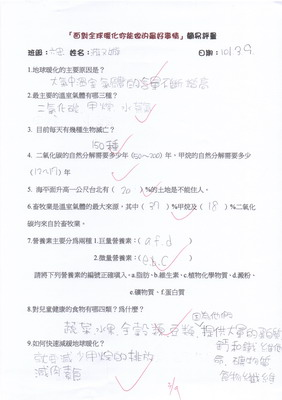 「面對全球暖化你能做的最好事情」簡易評量
班級：六 姓名： 日期：101.3.9.
1.地球暖化的主要原因是？
大氣中溫室氣體的含量不斷增高
2.最主要的溫室氣體有哪三種？
二氧化碳 甲烷
3. 目前每天有幾種生物滅亡？
150種
4. 二氧化碳的自然分解需要多少年(50~200)年。甲烷的自然分解需要多少
(12~17)年
5. 海平面升高一公尺台北有( 20 )%的土地是不能住人。
6.畜牧業是溫室氣體的最大來源，其中( 37 )%甲烷及( 18 )%二氧化
碳均來自於畜牧業。
7.營養素主要分為兩種 1.巨量營養素:( a f.d )
2.微量營養素:( b.e.C )
請將下列營養素的編號正確填入。a.脂肪、b.維生素、c.植物化學物質、d.澱粉、
e.礦物質、f.蛋白質
8.對兒童健康的食物有哪四類？為什麼？
蔬菜 水果 全穀類 豆類,提供大量的
9.如何快速減緩地球暖化？
就要減少甲烷的排放
減用
食物纖維